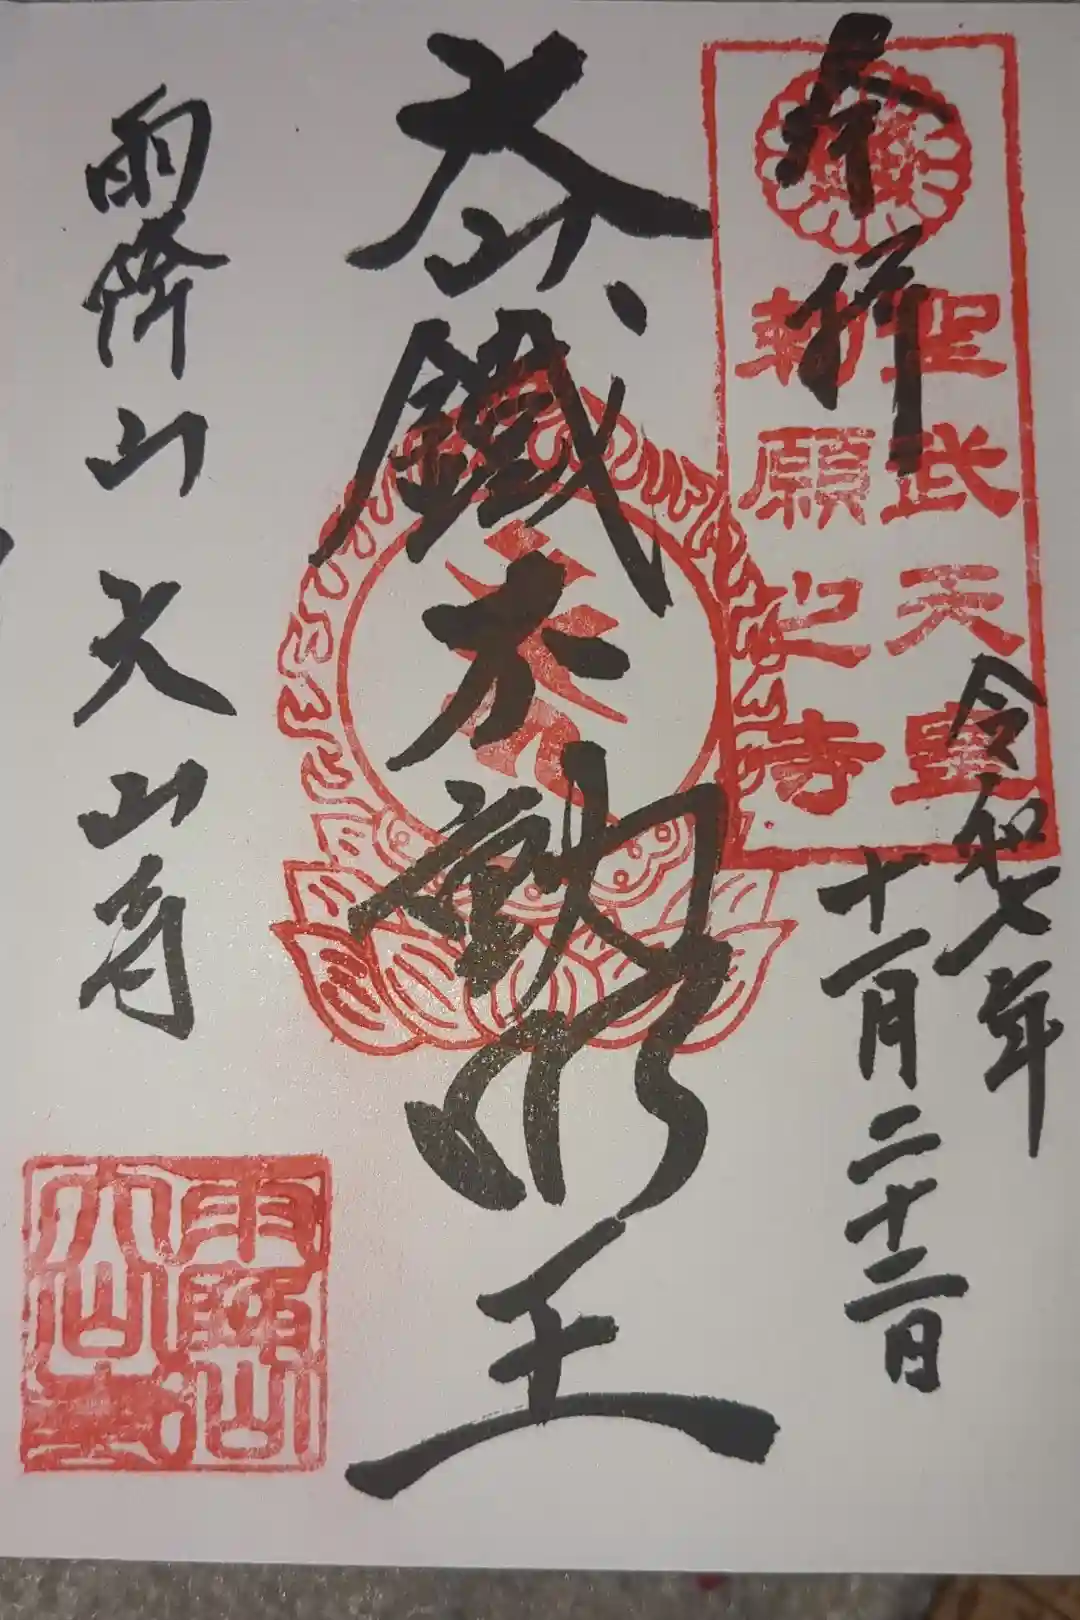 奉拝
聖武天皇
勅願之寺
令和七年
十一月二十三日
大山
鐵不動明王
雨降山大山寺
雨降山
大山寺